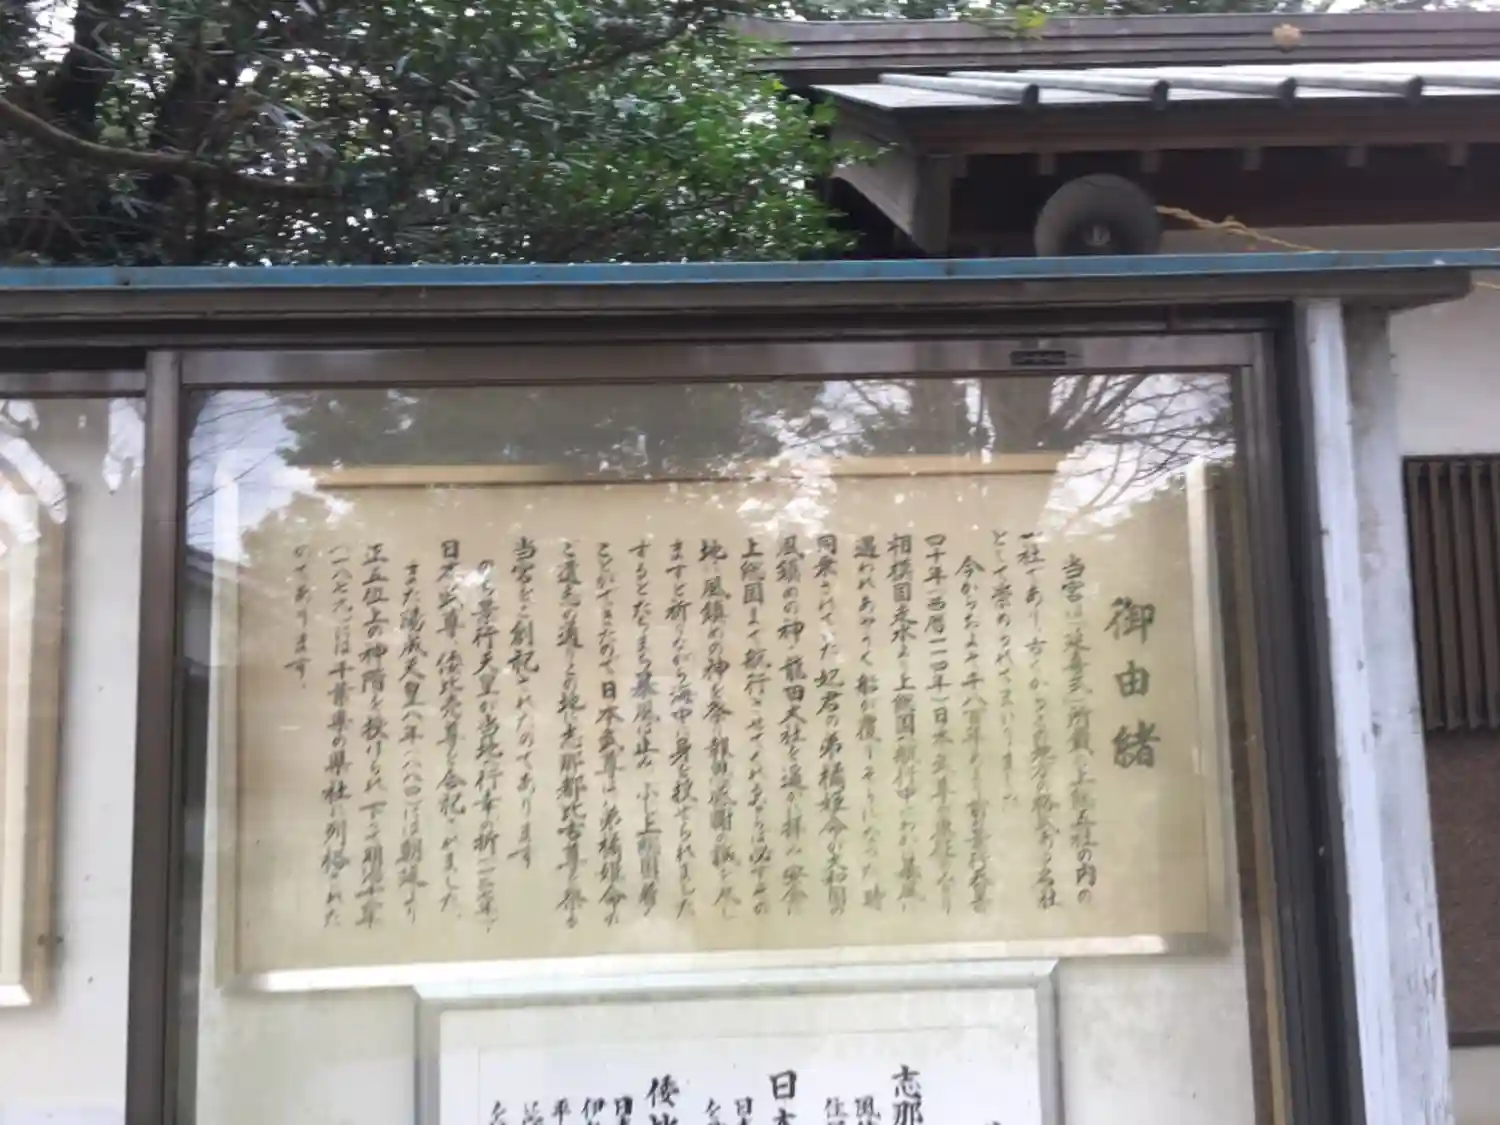 御由緒
当宮は「延喜式」所載の上総五社の内の
一社であり古くからこの地方の格式ある名社
として崇められてまいりました
今からおよそ千八百年あまり前景行天皇
四十年(西暦一一四年)日本武尊が東征になり
相模国走水より上総国へ航行中にわかに暴風に
遇われあやうく船が覆りそうになった時
同乗されていた妃君の弟橘姫命が大和国の
風鎮めの神・龍田大社を遥かに拝み「安全に
上総国まで航行させてくれるならば必ずその
地に風鎮めの神を祭り報恩感謝の誠を尽し
ますと祈りながら海中に身を投ぜられました
するとたちまち暴風は止み小上総国に着く
ことができたので日本武尊は弟橘姫命の
ご遺志の通りこの地に志那都比古尊を祭る
当宮をご創祀されたのであります
のち景行天皇が当地に行幸の折(一二三年)
日本武尊・倭比売尊を合祀されました。
また陽成天皇八年(八八四)には朝廷より
正五位上の神階を授けられ下って明治十二年
(一八七九)には千葉県の県社に列格された
のであります。
志那
日本
倭比